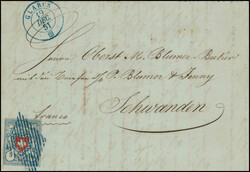 GLARUS
19
DEC.
51
Herrn Oberst M. Blumer-
P. Blumer & Jenny
Franco
Schwanden